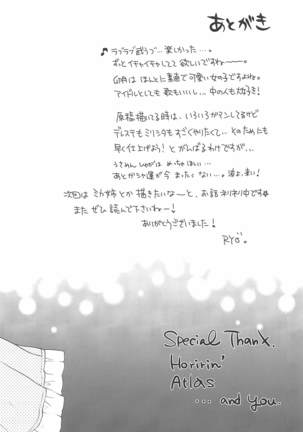 あとがき
♪ラブラブ戯うづ…楽しかった…。
ずっとイチャイチャしてて欲しいですねーー。
はほんとに素直で可愛い女の子ですよね。
アイドルとしても歌もいいし…中の人も好き！
原稿描いてる時は、いろいろガマンしてるけど
デレステもミリシタもすごくやりたくし…そのためにも
早く仕上げよう！とがんばるわけですが…
めっちゃほしい…
あとガシャ運が今まったくない…。
次回は とか描きたいなーと、お話ネリネリ中です
またぜひ読んで下さいねー！
ありがとうございました！
RYO
Special Thanx.
Horirin'
Atlas
... and you.